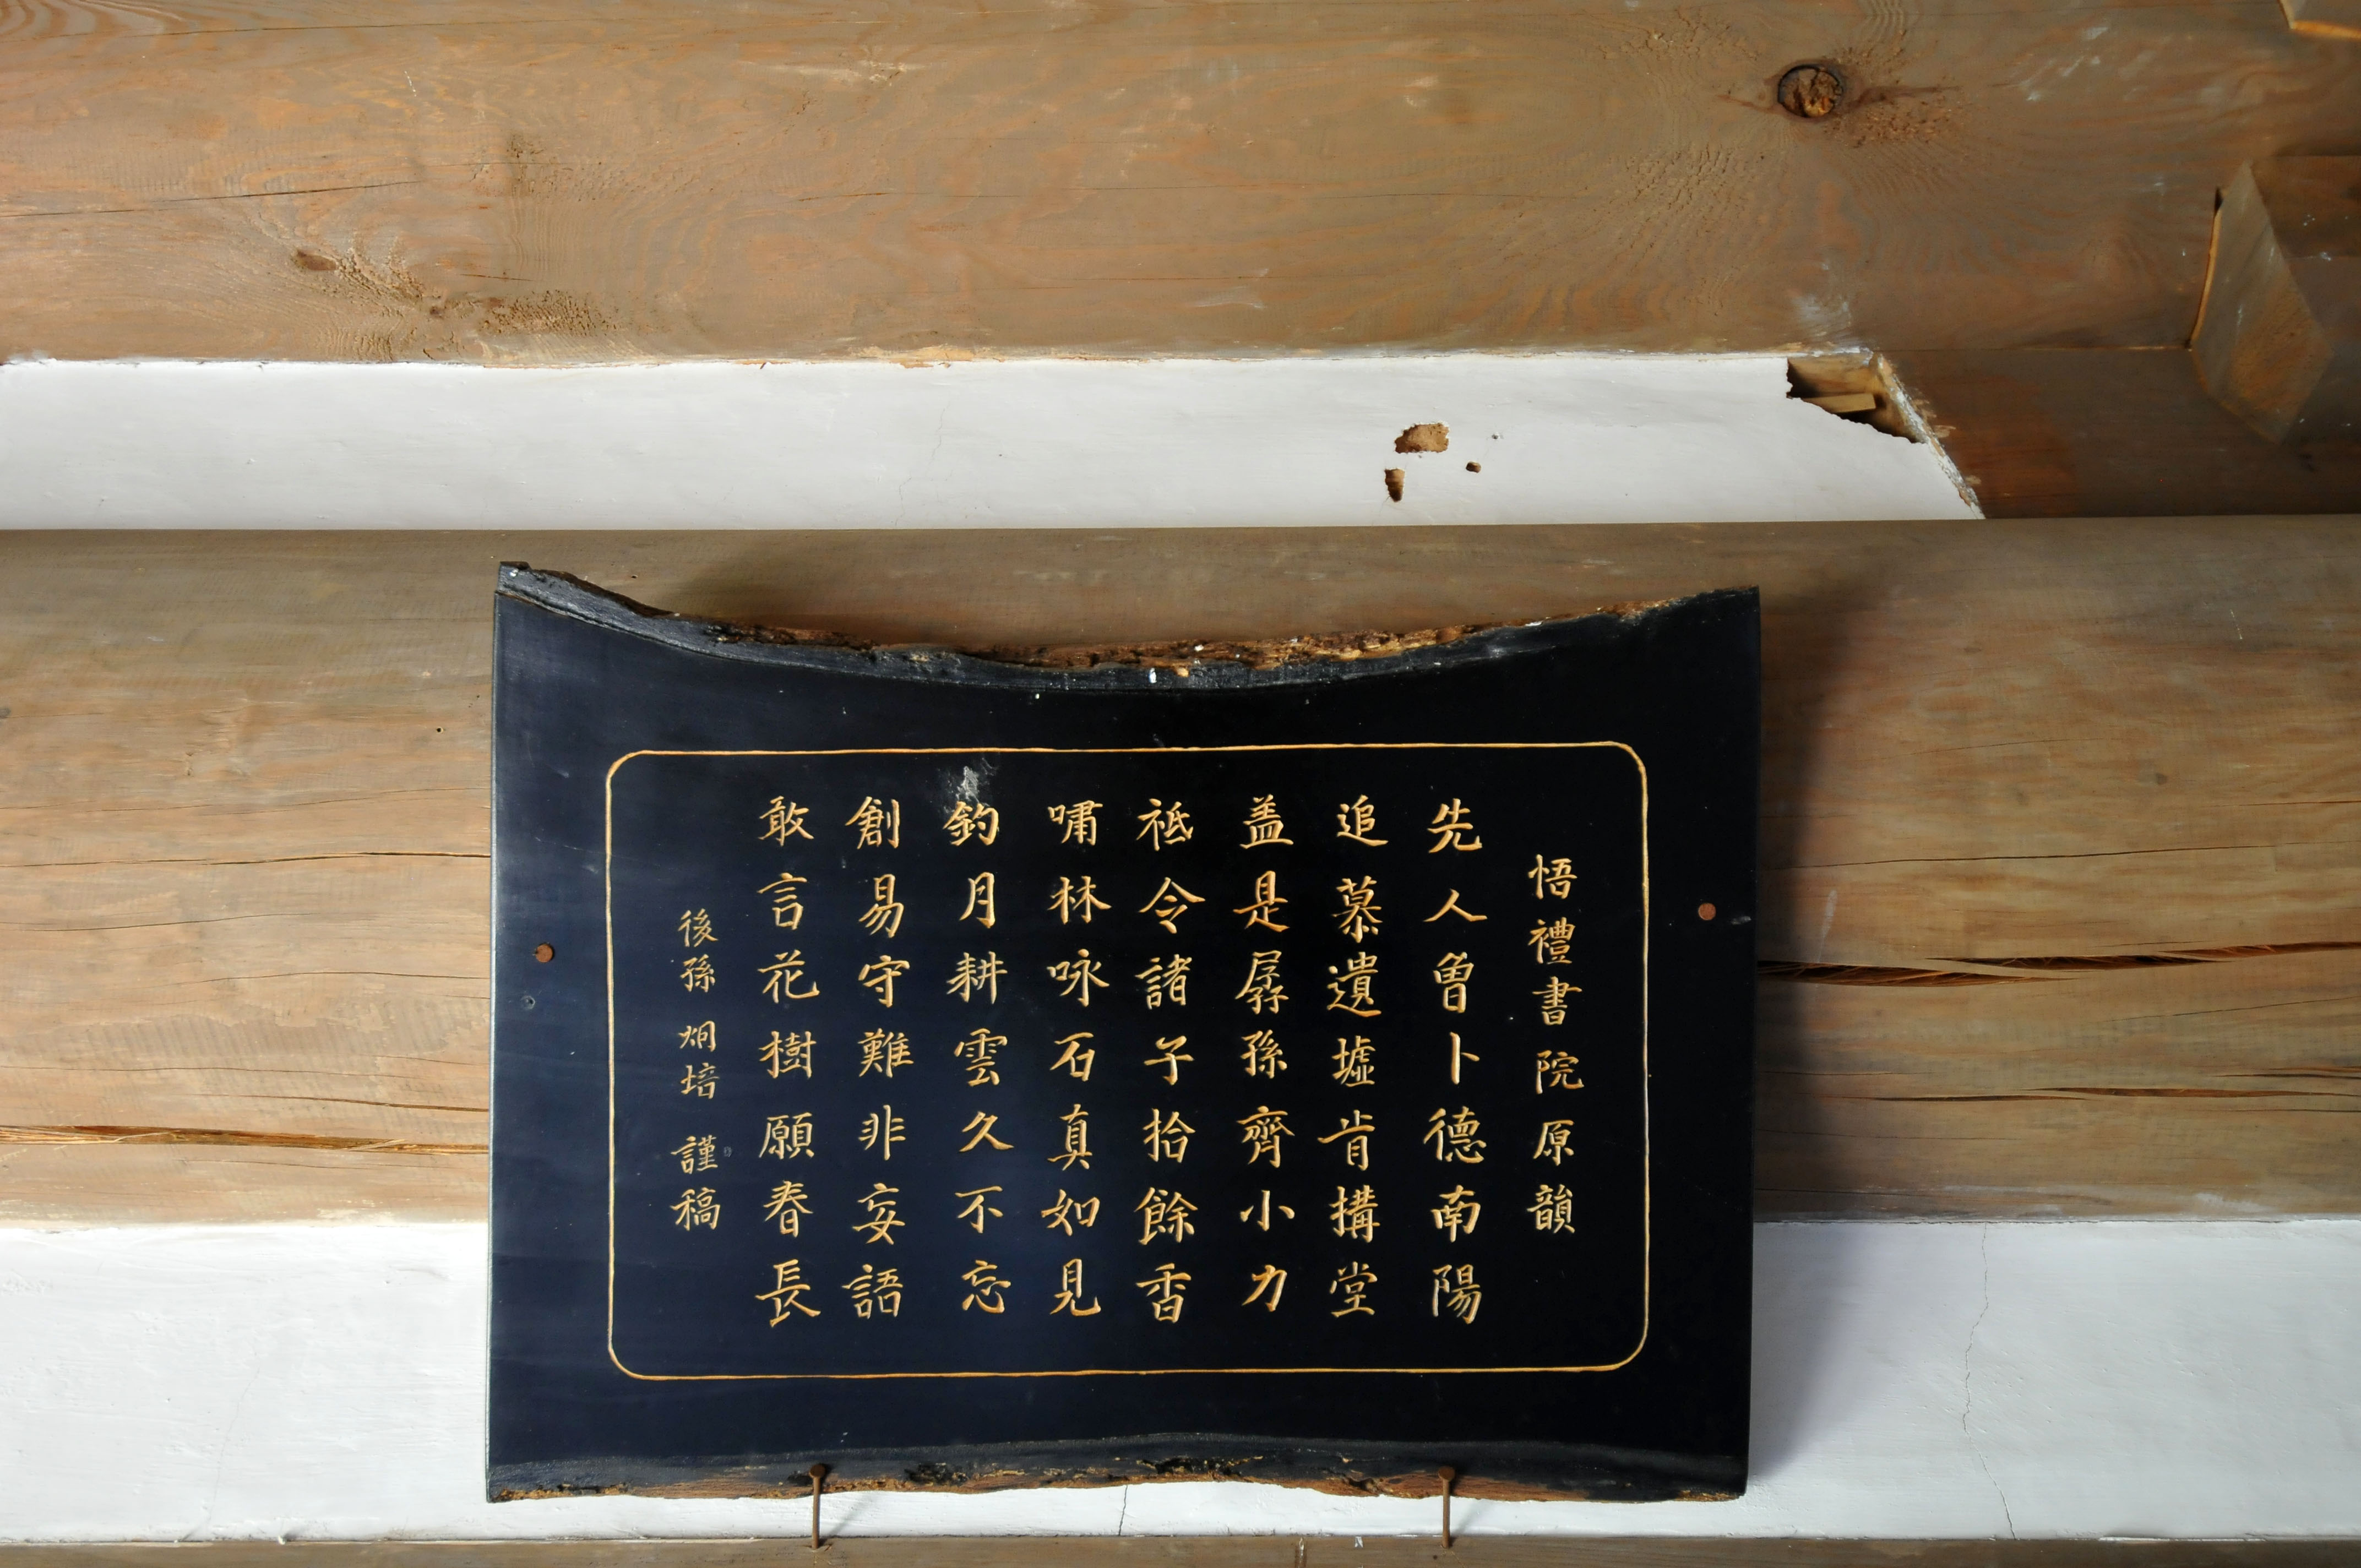 悟禮書院原韻
先人曽卜德南陽
追慕遺墟肯搆堂
盖是孱孫齊小力
祗令諸子拾餘香
嘯林咏石真如見
釣月耕雲久不忘
創易守難非妄語
敢言花樹願春長
後孫 炯培 謹稿